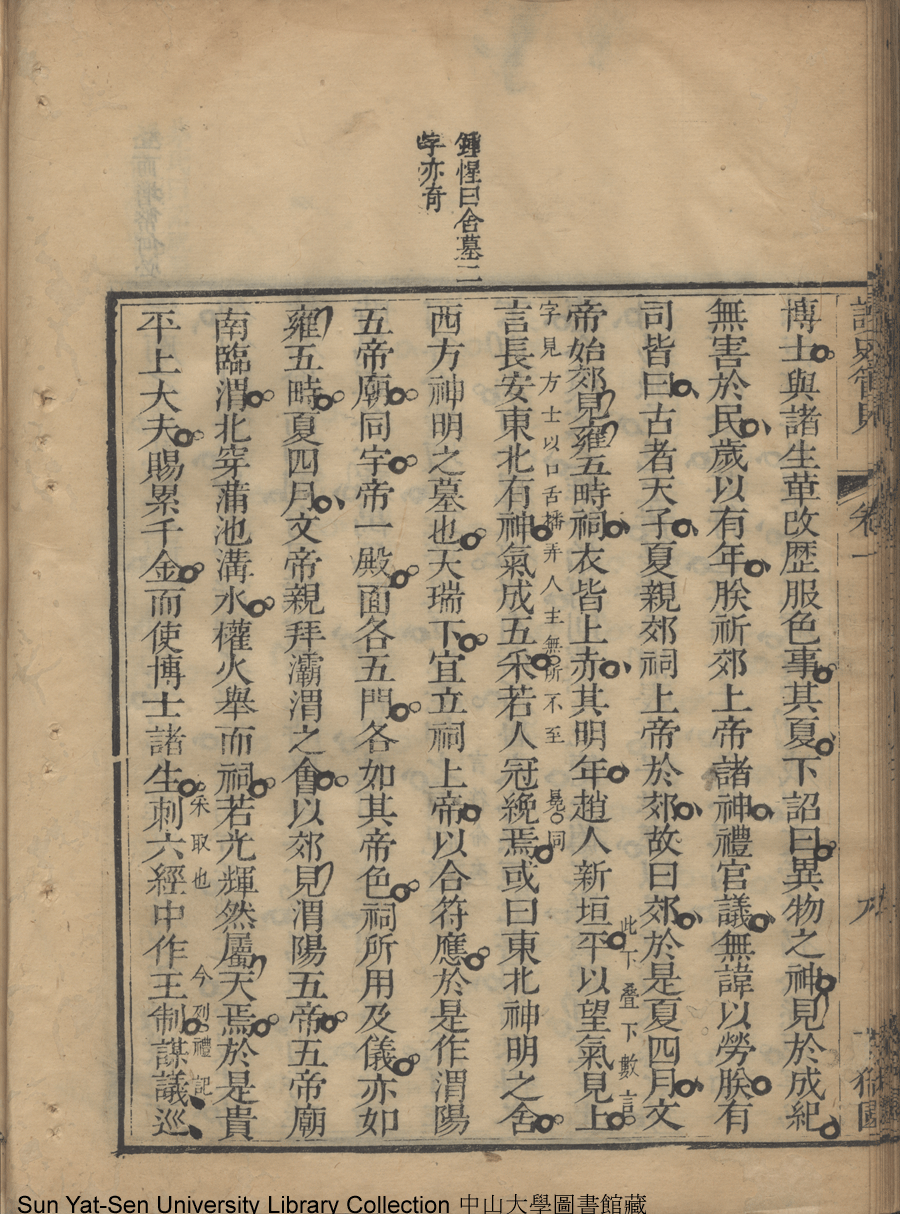 鍾惺曰舍墓二
字亦奇
讀史管見 卷一
博士與諸生草改歷服色事其夏下詔曰異物之神見於成紀
無害於民歲以有年朕祈郊上帝諸神禮官議無諱以勞朕有
司皆曰古者天子夏親郊祀上帝於郊故曰郊於是夏四月文
此下疊下數言
帝始郊見雍五畤祠衣皆上赤其明年趙人新垣平以望氣見上
字見方士以口舌播弄人主無所不至
冕同
言長安東北有神氣成五采若人冠絻焉或曰東北神明之舍
西方神明之墓也天瑞下宜立祠上帝以合符應於是作渭陽
五帝廟同宇帝一殿面各五門各如其帝色祠所用及儀亦如
雍五畤夏四月文帝親拜灞渭之會以郊見渭陽五帝五帝廟
南臨渭北穿蒲池溝水權火舉而祠若光輝然屬天焉於是貴
采取也
今列禮記
平上大夫賜累千金而使博士諸生刺六經中作王制謀議巡
Sun Yat-Sen University Library Collection 中山大學圖書館藏